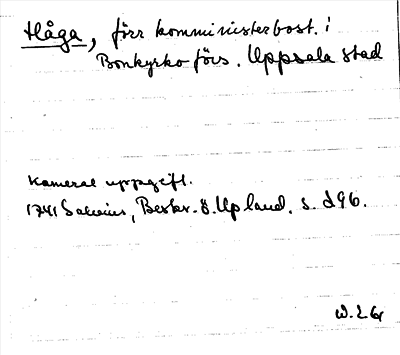 Håga, förr komministerbost. i
Bonkyrko förs. Uppsala stad
Kameral uppgift.
1741 Salvius, Beskr. ö. Upland. s. 296.